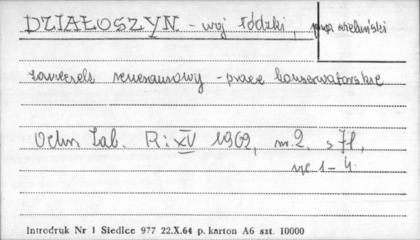 DZIAŁOSZYN - woj łódzki, pow wieluński
zameczek renesansowy - prace konserwatorskie
Ochr. Zab. R: XV 1962, nr. 2, s 71,
ryc. 1-4.
Introdruk Nr 1 Siedlce 977 22.X.64 p. karton A6 szt. 10000